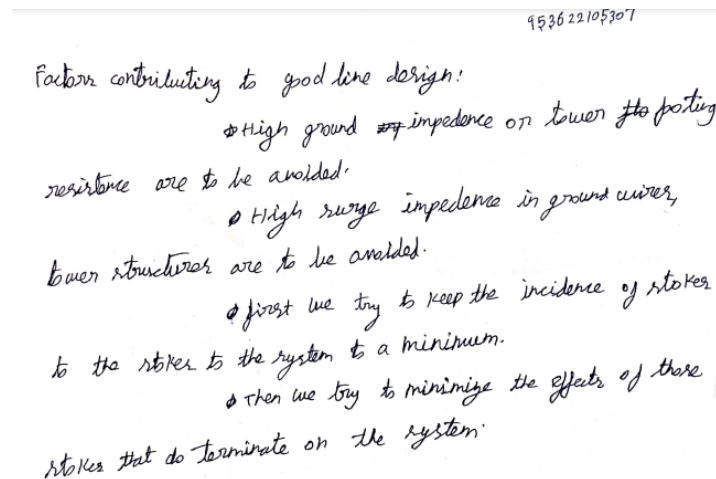 953622105307
Factors contributing to good line design:
High ground impedence or tower poting
resistance are to be avoided.
High surge impedence in ground wires,
tower structures are to be avoided.
first we try to keep the incidence of stokes
to the stokes to the system to a minimum.
Then we try to minimize the effects of those
stokes that do terminate on the system.